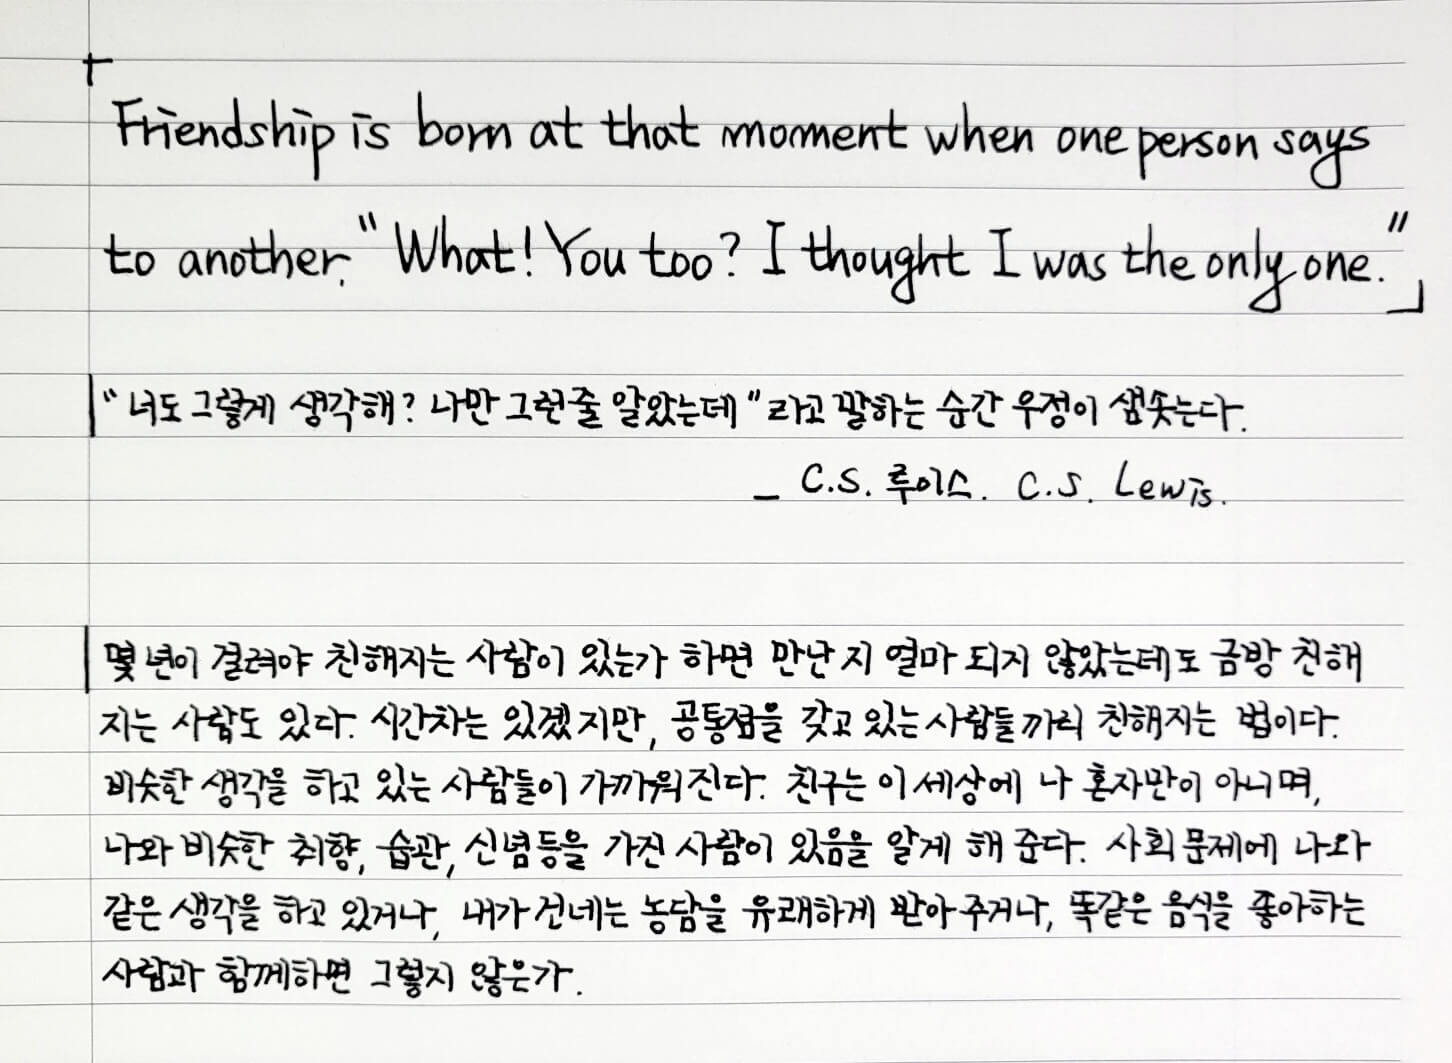 「Friendship is born at that moment when one person says
to another. "What! You too? I thought I was the only one."」
"너도 그렇게 생각해? 나만 그런줄 알았는데"라고 말하는 순간 우정이 샘솟는다.
_ C.S. 루이스. C.S. Lewis.
몇 년이 걸려야 친해지는 사람이 있는가 하면 만난 지 얼마 되지 않았는데도 금방 친해
지는 사람도 있다. 시간차는 있겠지만, 공통점을 갖고 있는 사람들끼리 친해지는 법이다.
비슷한 생각을 하고 있는 사람들이 가까워진다. 친구는 이 세상에 나 혼자만이 아니며,
나와 비슷한 취향, 습관, 신념등을 가진 사람이 있음을 알게 해 준다. 사회 문제에 나와
같은 생각을 하고 있거나, 내가 건네는 농담을 유쾌하게 받아 주거나, 똑같은 음식을 좋아하는
사람과 함께하면 그렇지 않은가.